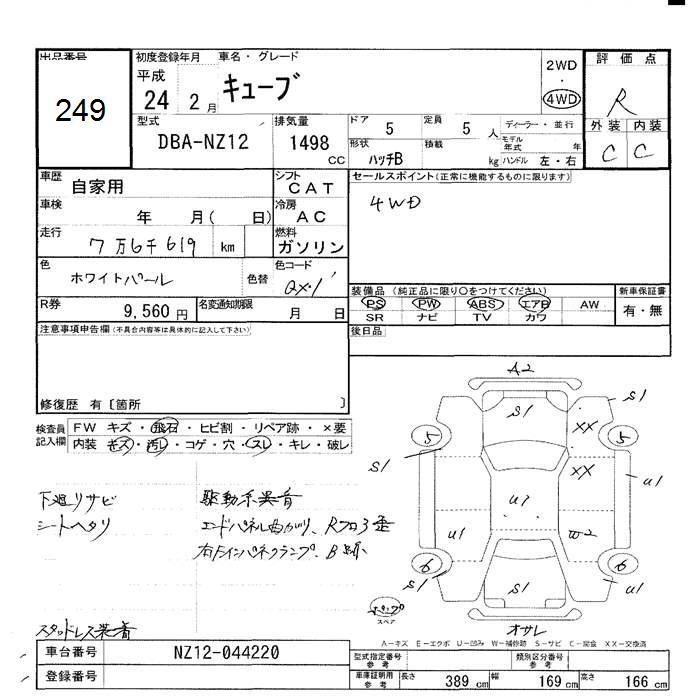 出品番号 初度登録年月 車名・グレード 評価点
249 平成 24 2月 キューブ 2WD・4WD R
型式 排気量 ドア 定員 ディーラー・並行 外装 内装
DBA-NZ12 1498 CC 5 5人 モデル年式 年 C C
形状 積載
ハッチB kg ハンドル 左・右
車歴 自家用 シフト CAT セールスポイント(正常に機能するものに限ります)
車検 年 月( 日) 冷房 AC 4WD
走行 7万6千619 km 燃料 ガソリン
色 ホワイトパール 色替 色コード QX・1
装備品(純正品に限り○をつけてください) 新車保証書
PS PW ABS エアB AW 有・無
SR ナビ TV カワ
R券 9,560円 名変通知期限 月 日
注意事項申告欄(不具合内容等は具体的に記入して下さい) 後日品
修復歴 有〔箇所 〕
検査員記入欄 FW キズ・飛石・ヒビ割・リペア跡・×要
内装 キズ・汚レ・コゲ・穴・スレ・キレ・破レ
A2
S1 S1
XX
5 5
XX
S1 U1
U1
U1 W2
6 6
S1 S1 U1
下廻りサビ 駆動系異音
シートヘタリ エンドパネル曲がり、Rフロア歪
スペア
オサレ
スタッドレス装着
A-キズ E-エクボ U-凹み W-補修跡 S-サビ C-腐食 XX-交換済
車台番号 NZ12-044220 型式指定番号 参考 類別区分番号 参考
登録番号 車庫証明用 参考 長さ 389cm 幅 169cm 高さ 166cm